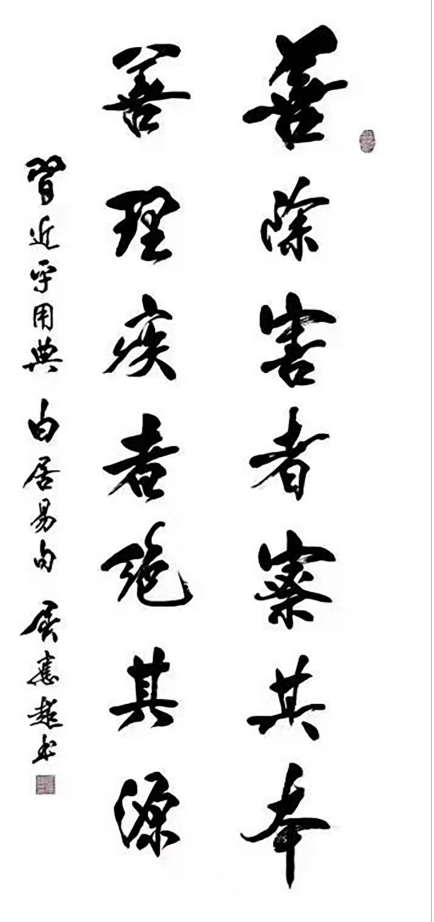 善除害者察其本
善理疾者绝其源
習近平用典 白居易句 超书